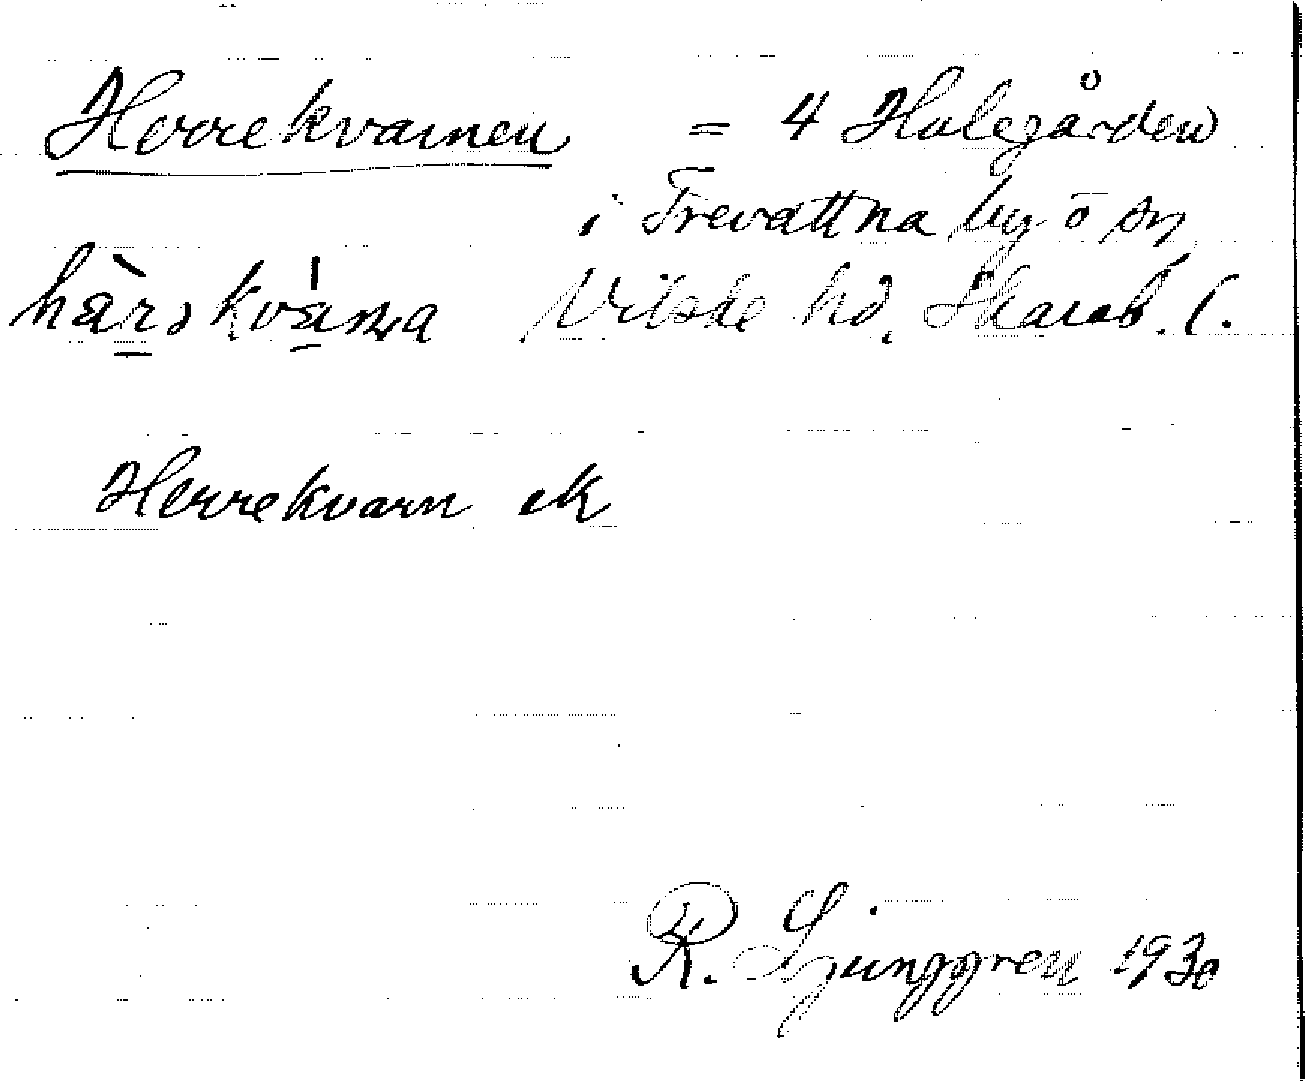 Herrekvarnen = 4 Holegården
i Trevattna by o sn
härskvàrna Vilske hd. Skarab. l.
Herrekvarn ek
R. Ljunggren 1930